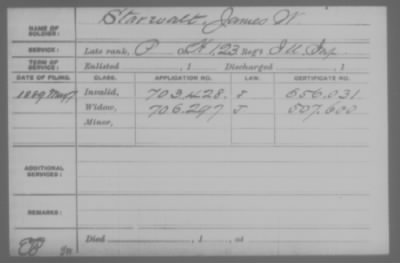 NAME OF SOLDIER: Starwalt, James W.
SERVICE: Late rank, P Co. K, 123 Reg't Ill Inf.
TERM OF SERVICE: Enlisted , 1 Discharged , 1
DATE OF FILING. CLASS. APPLICATION NO. LAW. CERTIFICATE NO.
1889 May 7 Invalid, 703.428. J 656.031
Widow, 706.297 J 507.600
Minor,
ADDITIONAL SERVICES:
REMARKS:
Died , 1 , at